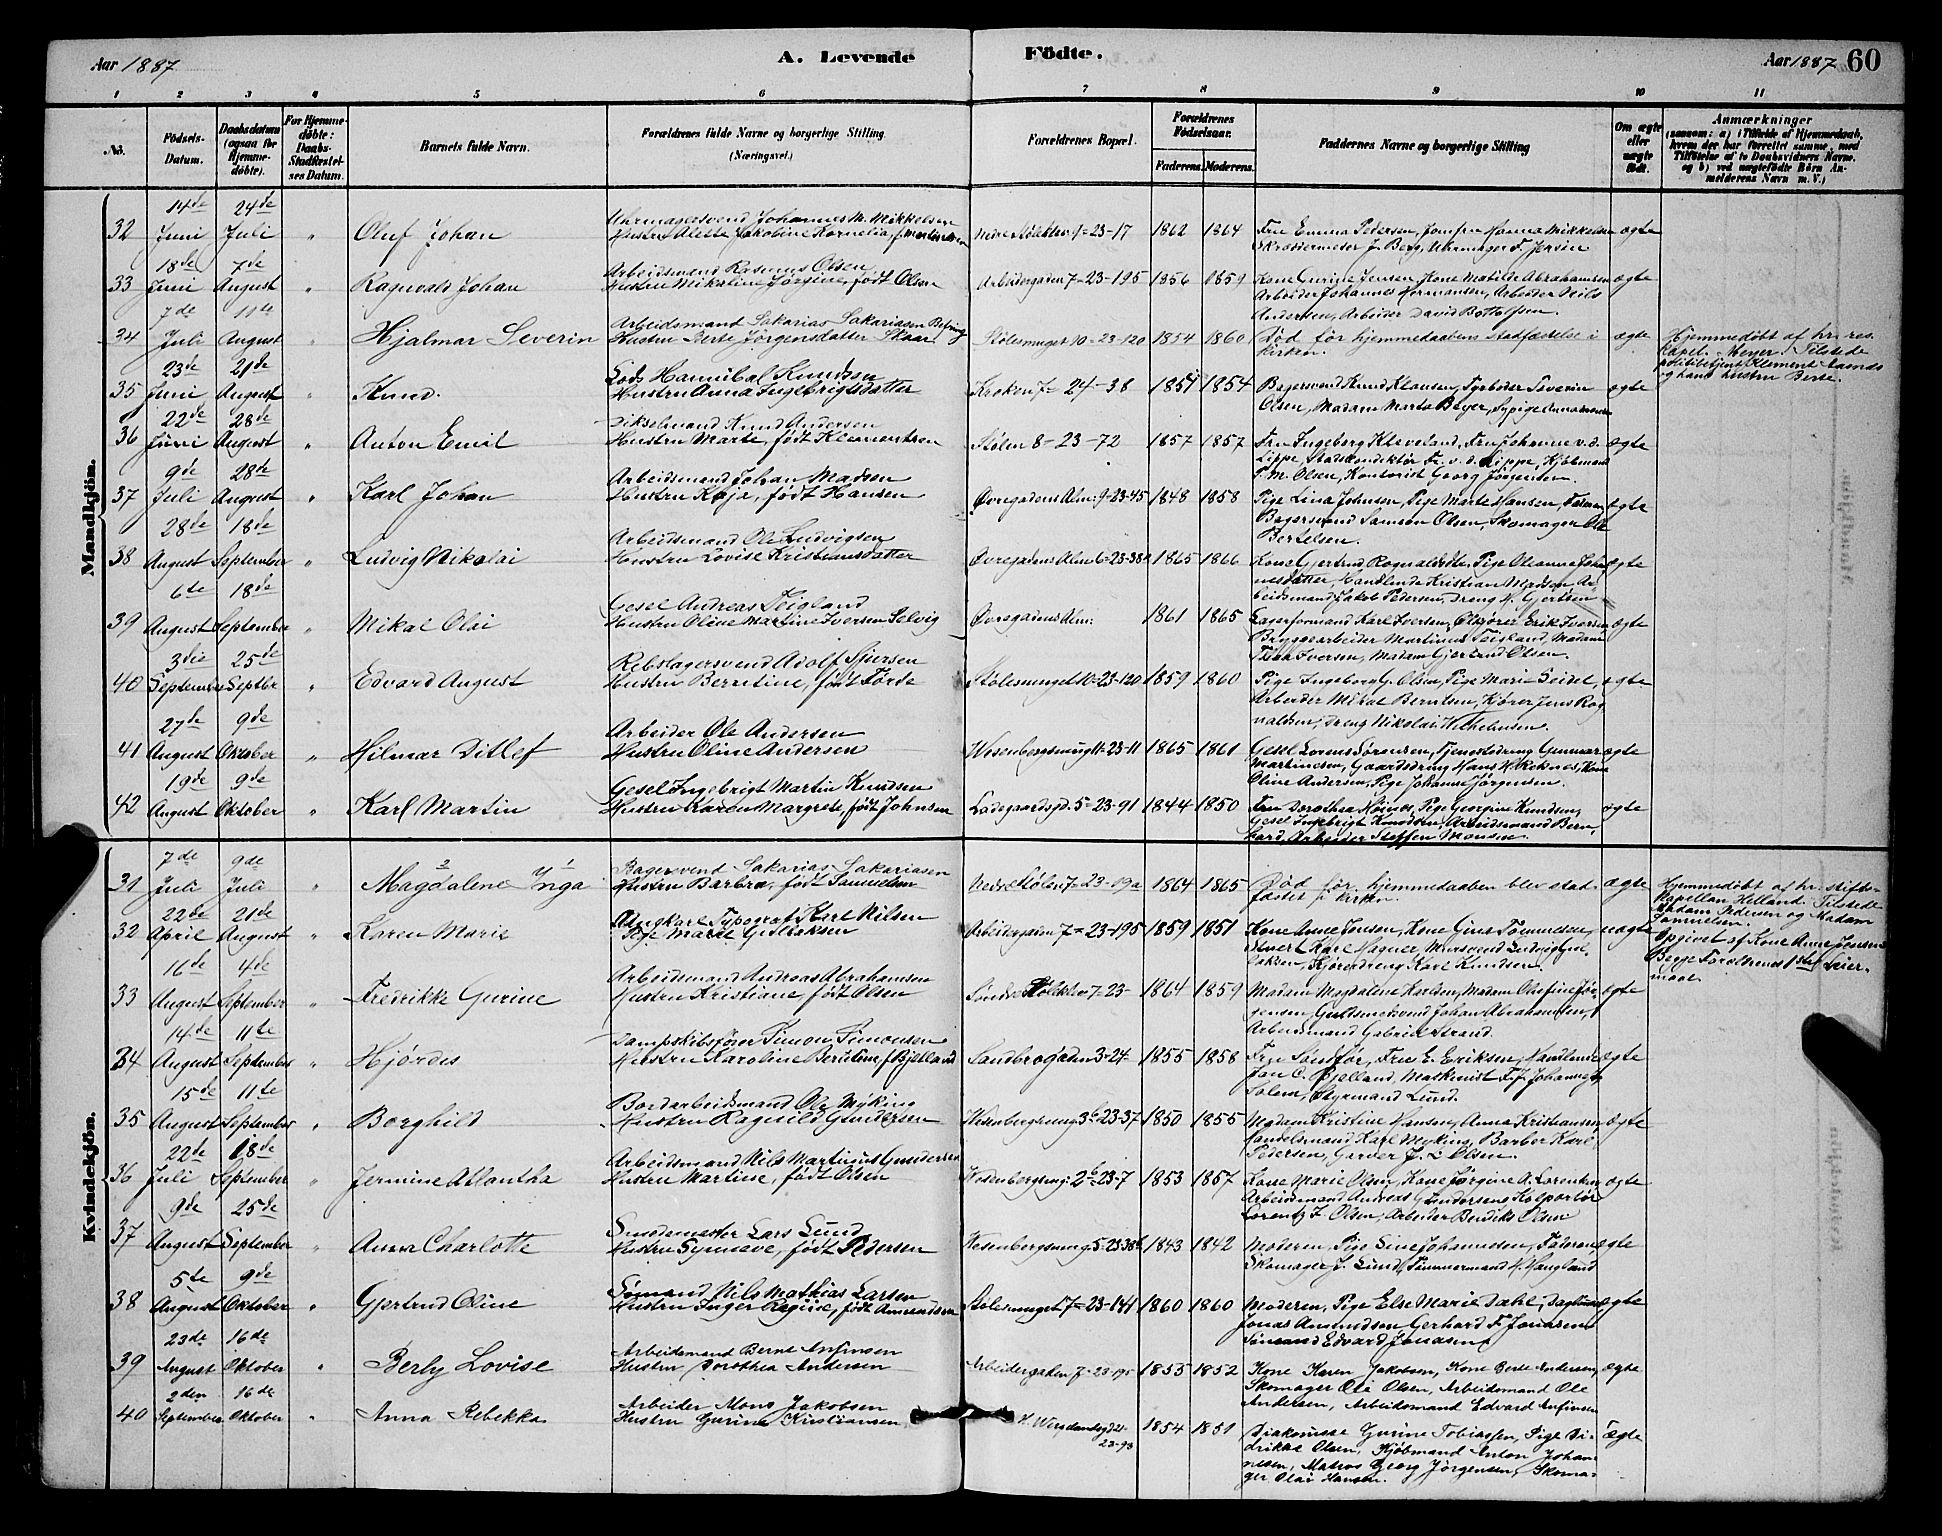 Aar 1887
A. Levende Födte.
Aar 1887 60
1 2 3 4 5 6 7 8 9 10 11
No.
Födsels-Datum.
Daabsdatum (ogsaa for Hjemme-döbte).
For Hjemme-döbte: Daabs-Stadfæstel-ses Datum.
Barnets fulde Navn.
Forældrenes fulde Navne og borgerlige Stilling. (Næringsvei.)
Forældrenes Bopæl.
Forældrenes Födselsaar.
Faderens. Moderens.
Faddernes Navne og borgerlige Stilling
Om ægte eller uægte födt.
Anmærkninger
(saasom: a) i Tilfælde af Hjemmedaab, hvem der har forrettet samme, med Tilföielse af to Daabsvidners Navne, og b) ved uægtefödte Börn Anmelderens Navn m. V.)
Mandkjön.
32 14de Juni 24de Juli " Oluf Johan
Uhrmagersvend Johannes M. Mikkelsen
Hustru Alette Jakobine Kornelia f. Martinsen
9-23-17 1862 1864
Fru Emma Pedersen, Jomfru Hanna Mikkelsen
Skræddermester J. Berg, Uhrmager F. Jensen
ægte
33 18de Juni 7de August " Ragnvald Johan
Arbeidsmand Rasmus Olsen
Hustru Mikaline Jørgine, født Olsen
Arbeidergaden 7-23-195 1856 1859
Kone Gurine Jensen, Kone Matilde Abrahamsen
Arbeider Johannes Hermansen, Arbeider Nils
Andersen, Arbeider David Bottolfsen
ægte
34 7de Juli 11te August " Hjalmar Severin
Arbeidsmand Sakarias Sakariassen
Hustru Berte Jørgensdatter Skaar
Stølesmuget 10-23-120 1854 1860
Død før hjemmedaabens stadfæstelse i
kirken.
ægte
Hjemmedøbt af hr. res.
kapel. Meyer. Tilstede
politibetjent Klement
og hans hustru Berte.
35 23de Juni 21de August " Knud.
Lods Hannibal Knudsen
Hustru Anna Ingebrigtsdatter
Kroken 7- 24-38 1851 1854
Bagersvend Knud Klausen, Fyrbøder Severin
Olsen, Madam Marta Beyer, Sypige
ægte
36 22de Juni 28de August " Anton Emil
Knud Andersen
Hustru Marte, født Klementsen
Stølen 8-23-72 1857 1857
Fru Ingeborg Kleveland, Fru Johanne v. d.
Lippe, Stadskonduktør Fr. v. d. Lippe, Kjøbmand
P. M. Olsen, Kontorist Georg Jørgensen.
ægte
37 9de Juli 28de August " Karl Johan
Arbeidsmand Johan Madsen
Hustru Kaja, født Hansen
Øvregadens Alm: 9-23-45 1848 1858
Pige Lina Johnsen, Pige Marte Hansen, Faderen
Bagersvend Samson Olsen, Skomager Ole
Bertelsen.
ægte
38 28de August 18de September " Ludvig Nikolai
Arbeidsmand Ole Ludvigsen
Hustru Lovise Kristiansdatter
Øvregadens Alm: 6-23-38a 1865 1866
Kone Gjertrud Rognaldsdtr, Pige Oleanna Johan
nesdatter, Handlende Kristian Madsen, Ar
beidsmand Jakob Pedersen, Dreng N. Gjertsen
ægte
39 6te August 18de September " Mikal Olai
Gesel Andreas Teigland
Hustru Oline Martine Iversen Selvig
Øvregadens Alm: 1861 1865
Lagerformand Karl Iversen, Erik Iversen
Bryggearbeider Martinus Teigland, Madam
Iversen, Madam Gjertrud Olsen.
ægte
40 3die September 25de Septbr " Edvard August
Rebslagersvend Adolf Sjursen
Hustru Berntine, født Førde
Stølesmuget 10-23-120 1859 1860
Pige Ingeborg G. Olsen, Pige Marie Seidel,
Arbeider Mikal Berntsen, Kjører Jens Rog
naldsen, Dreng Nikolai Wilhelmsen.
ægte
41 27de August 9de Oktober " Hilmar Ditlef
Arbeider Ole Andersen
Hustru Oline Andersen
Wesenbergsmug 11-23-11 1865 1861
Gesel Lorens Sørensen, Tjenestedreng Gunnar
Martinsen, Gaardsdreng Hans H. Reknes, Kone
Oline Andersen, Pige Johanne Jørgensen.
ægte
42 19de August 9de Oktober " Karl Martin
Gesel Ingebrigt Martin Knudsen
Hustru Karen Margrete, født Johnsen
Ladegaardsgd. 5-23-91 1844 1850
Fru Dorothea Høines, Pige Georgine Knudsen,
Gesel Ingebrigt Knudsen, Arbeidsmand Bern
hard, Arbeider Steffen Monsen.
ægte
Kvindekjön.
31 7de Juli 9de Juli " Magdalene Inga
Bagersvend Sakarias Sakariasen
Hustru Barbra, født Samuelsen
Nedre Stølen 7-23-19a 1864 1865
Død før hjemmedaaben blev stad-
fæstet i kirken.
ægte
Hjemmedøbt af hr. stifts-
kapellan Helland. Tilstede
Madam Pedersen og Madam
Samuelsen.
32 22de April 21de August " Karen Marie
Ungkarl Typograf Karl Nilsen
Pige Marie Gullaksen
Arbeidergaden 7-23-195 1859 1851
Kone Anne Jensen, Kone Gina Tønnesen,
Karl Wagner, Mursvend Ludvig Gul
laksen, Kjøredreng Karl Knudsen.
uægte
Opgivet af Kone Anne Jensen
Begge Forældrenes 1ste Leier-
maal
33 16de August 4de September " Fredrikke Gurine
Arbeidsmand Andreas Abrahamsen
Hustru Kristiane født Olsen
7-23- 1864 1859
Madam Magdalene Karlsen, Madam Olefine Jør
gensen, Guldsmedsvend Johan Abrahamsen,
Arbeidsmand Gabriel Strand.
ægte
34 14de August 11te September " Hjørdis
Dampskibsfører Simon Simonsen
Hustru Karoline Berntine f. Bjelland
Sandbrogaden 3-24 1855 1858
Fru Sandfær, Fru E. Eriksen, Handlende
Jan C. Bjelland, Maskinist Johannes
Solem, Styrmand Lund.
ægte
35 15de August 11te September " Borghild
Bordarbeidsmand Ole Myking
Hustru Ragnild Gundersen
Wesenbergsmug 3b-23-37 1850 1855
Madam Kristine Hansen, Anna Kristiansen,
Handelsmand Karl Myking, Barber Karl
Pedersen, Garver J. L. Olsen.
ægte
36 22de Juli 18de September " Jermine Atlantha
Arbeidsmand Nils Martinus Gundersen
Hustru Martine, født Olsen
Wesenbergsmug 2b-23-7 1853 1857
Kone Marie Olsen, Kone Jørgine A. Lorentzen
Arbeidsmand Andreas Gundersen, Kolportør
Lorentz Z. Olsen, Arbeider Bendiks Olsen
ægte
37 9de August 25de September " Anna Charlotte
Smedemester Lars Lund
Hustru Synneve, født Pedersen
Wesenbergsmug 5-23-38b 1843 1842
Moderen, Pige Sine Johannesen, Faderen,
Skomager J. Lund, Tømmermand H. Haugland
ægte
38 5te August 9de Oktober " Gjertrud Oline
Sømand Nils Mathias Larsen
Hustru Inger Regine, født Amundsen
Stølesmuget 17-23-141 1860 1860
Moderen, Pige Else Marie Dahl, Dagleier
Jonas Amundsen, Gerhard F. Jonassen
Sømand Edvard Jonasen
ægte
39 23de August 16de Oktober " Berly Lovise
Arbeidsmand Bernt Anfinsen
Hustru Dorothea Andersen
Arbeidergaden 7-23-195 1853 1852
Kone Karen Jakobsen, Kone Berte Andersen,
Skomager Ole Olsen, Arbeidsmand Ole
Andersen, Arbeidsmand Edvard Anfinsen
ægte
40 2den September 16de Oktober " Anna Rebekka
Arbeider Mons Jakobsen
Hustru Gurine Kristiansen
23-93 1854 1851
Diakonisse Gurine Tobiassen, Pige Di-
drikke Olsen, Kjøbmand Anton Johan
nesen, Matros Georg Jørgensen, Skoma-
ger Olai Hansen.
Ægte